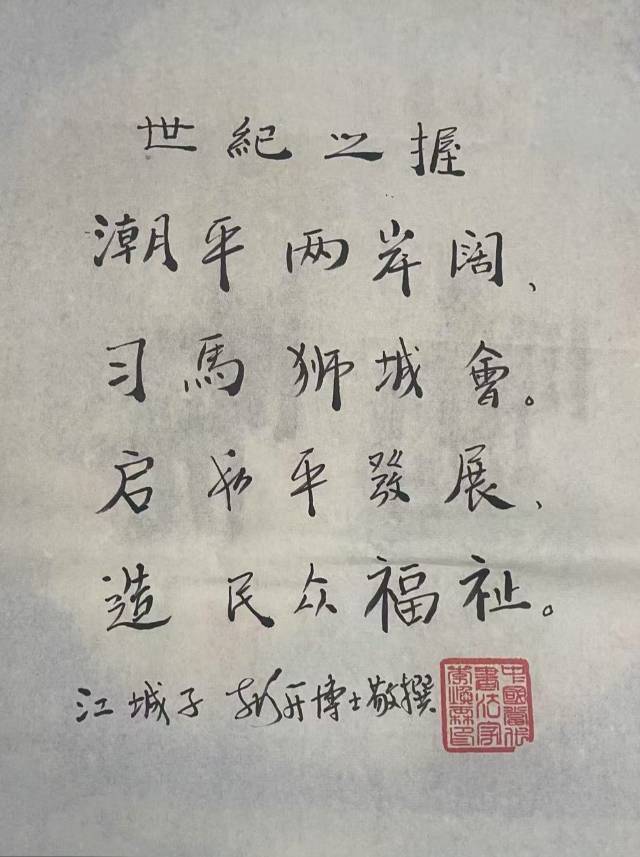 世紀之握
潮平两岸阔、
习馬狮城會。
启和平發展、
造民众福祉。
江城子 博士敬撰
中國當代
書法家